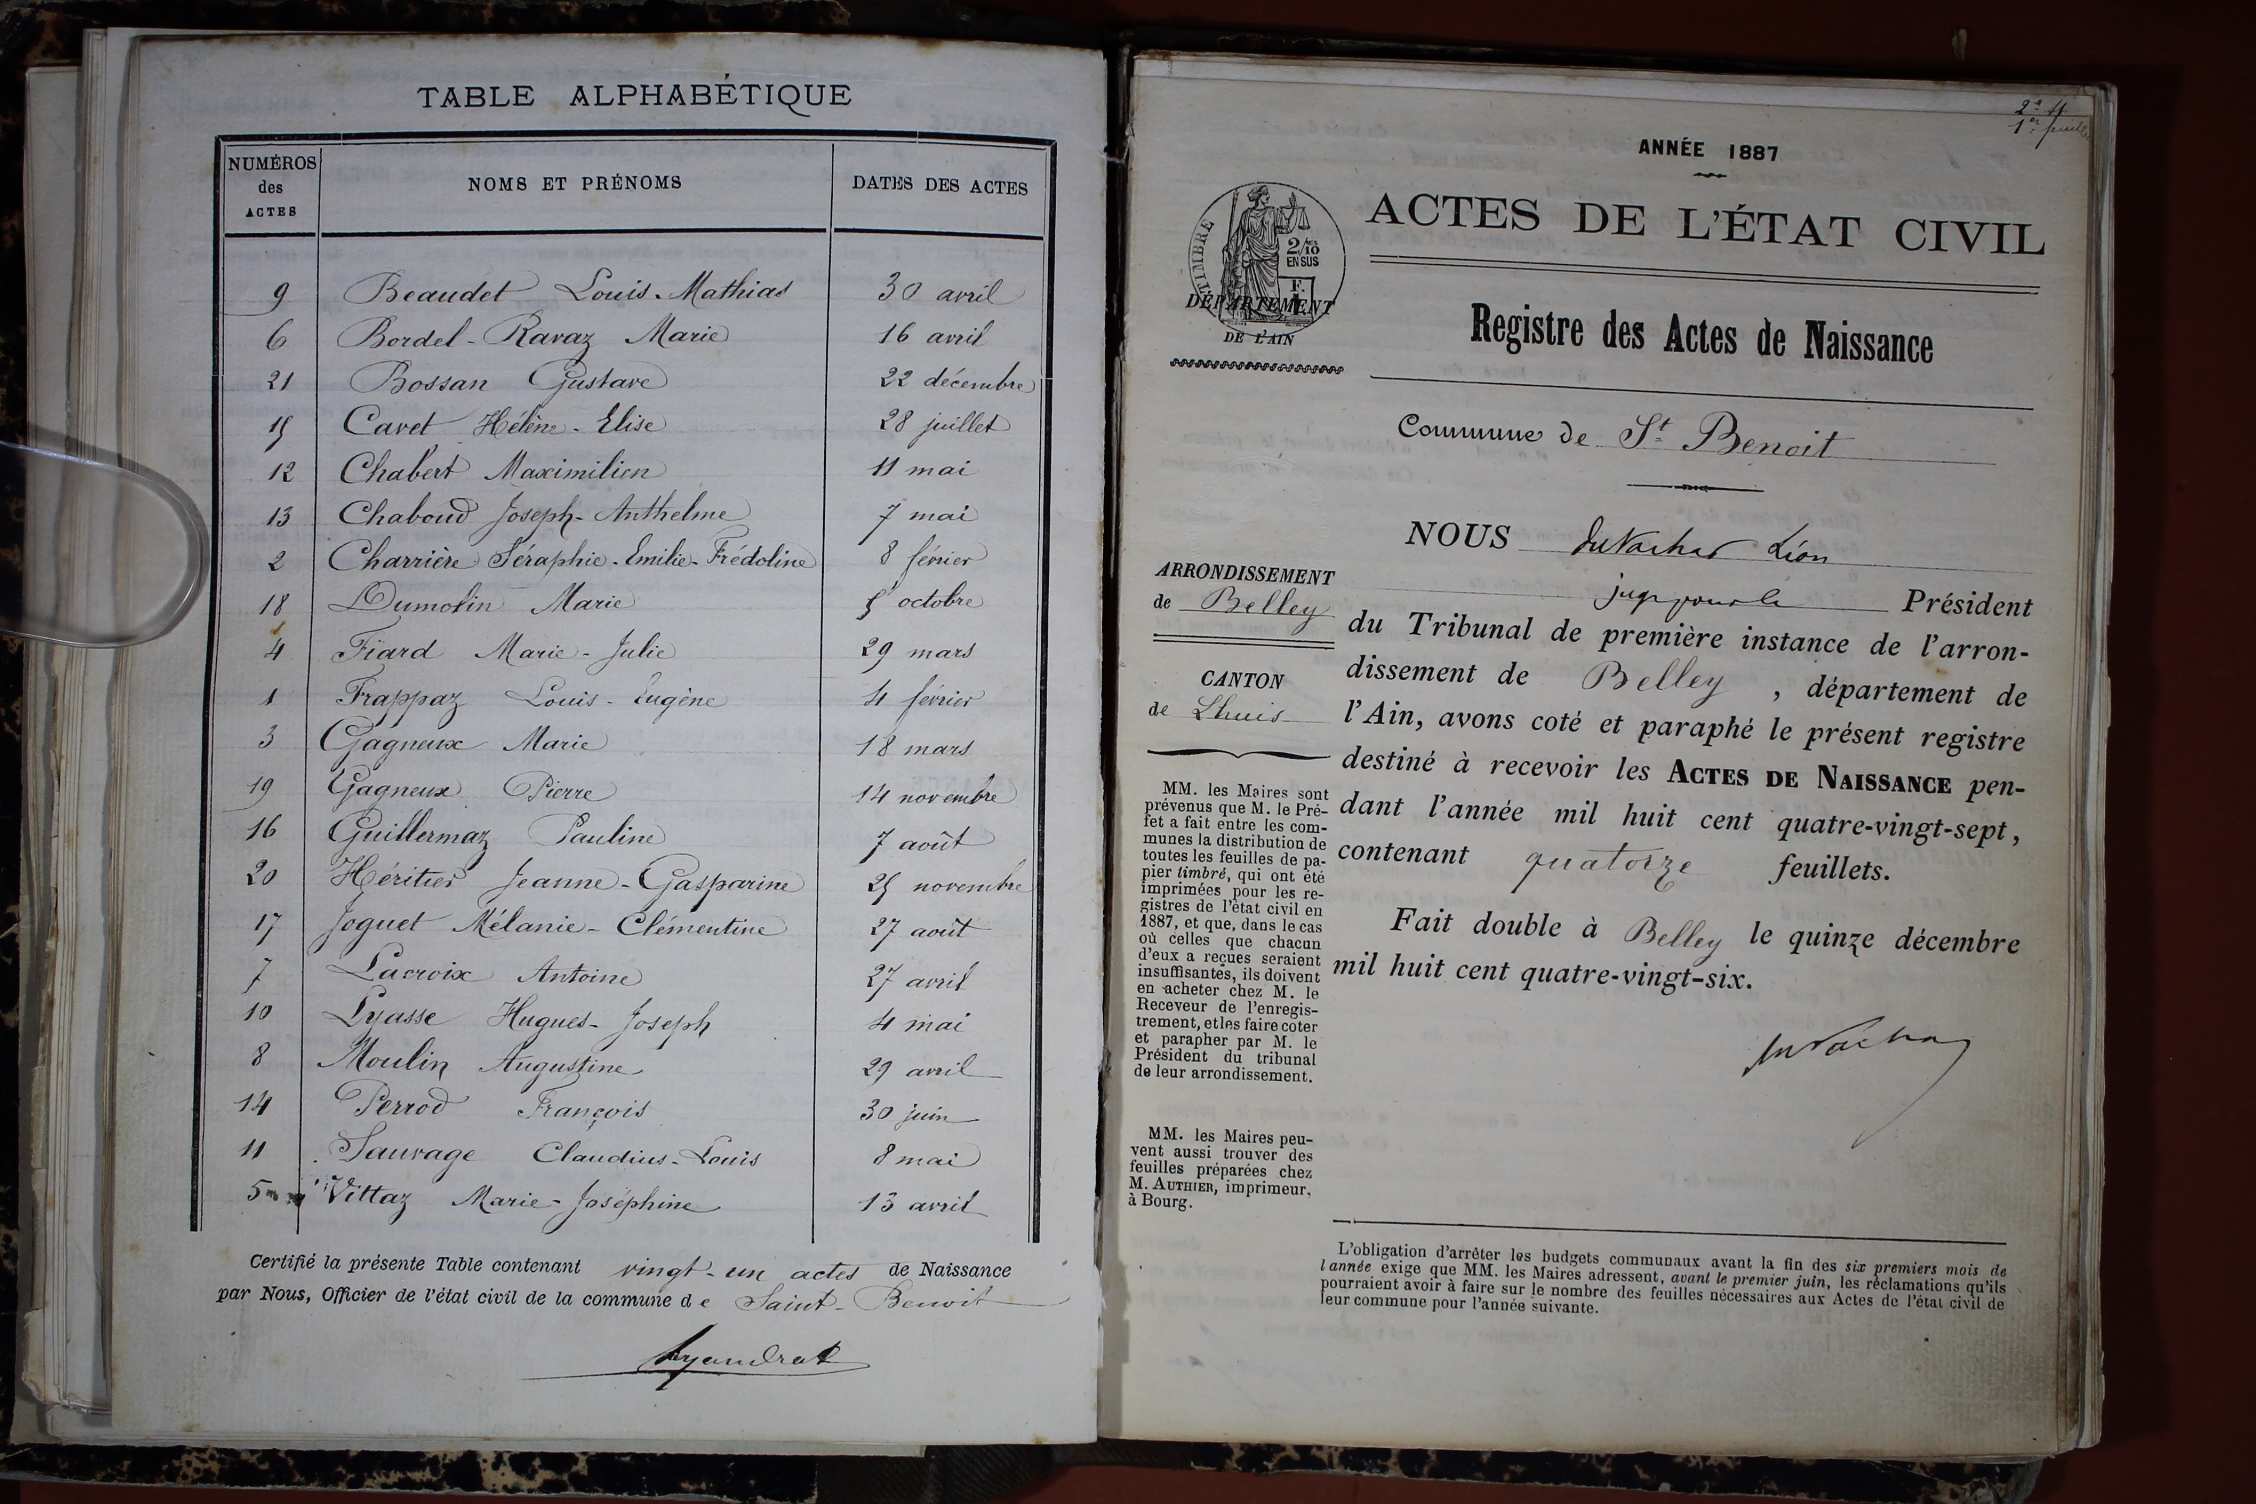 TABLE ALPHABÉTIQUE
NUMÉROS des ACTES
NOMS ET PRÉNOMS
DATES DES ACTES
9 Beaudet Louis-Mathias 30 avril
6 Bordel-Ravaz Marie 16 avril
21 Bossan Gustave 22 décembre
15 Cavet Hélène-Elise 28 juillet
12 Chabert Maximilien 11 mai
13 Chaboud Joseph-Anthelme 7 mai
2 Charrière Séraphie-Emilie-Frédoline 8 février
18 Dumolin Marie 5 octobre
4 Fiard Marie-Julie 29 mars
1 Frappaz Louis-Eugène 4 février
3 Gagneux Marie 18 mars
19 Gagneux Pierre 14 novembre
16 Guillermaz Pauline 7 août
20 Héritier Jeanne-Gasparine 25 novembre
17 Joguet Mélanie-Clémentine 27 août
7 Lacroix Antoine 27 avril
10 Lyasse Hugues-Joseph 4 mai
8 Moulin Augustine 29 avril
14 Perrod François 30 juin
11 Sauvage Claudius-Louis 8 mai
5 Vittaz Marie-Joséphine 13 avril
Certifié la présente Table contenant vingt-un actes de Naissance
par Nous, Officier de l'état civil de la commune de Saint-Benoit
ANNÉE 1887
ACTES DE L'ÉTAT CIVIL
TIMBRE
2/10
EN SUS
DÉPARTEMENT
DE L'AIN
Registre des Actes de Naissance
Commune de St Benoit
ARRONDISSEMENT
de Belley
CANTON
de Lhuis
MM. les Maires sont
prévenus que M. le Pré-
fet a fait entre les com-
munes la distribution de
toutes les feuilles de pa-
pier timbré, qui ont été
imprimées pour les re-
gistres de l'état civil en
1887, et que, dans le cas
où celles que chacun
d'eux a reçues seraient
insuffisantes, ils doivent
en acheter chez M. le
Receveur de l'enregis-
trement, et les faire coter
et parapher par M. le
Président du tribunal
de leur arrondissement.
MM. les Maires peu-
vent aussi trouver des
feuilles préparées chez
M. AUTHIER, imprimeur,
à Bourg.
NOUS Léon
juge pour le Président
du Tribunal de première instance de l'arron-
dissement de Belley, département de
l'Ain, avons coté et paraphé le présent registre
destiné à recevoir les ACTES DE NAISSANCE pen-
dant l'année mil huit cent quatre-vingt-sept,
contenant quatorze feuillets.
Fait double à Belley le quinze décembre
mil huit cent quatre-vingt-six.
L'obligation d'arrêter les budgets communaux avant la fin des six premiers mois de
l'année exige que MM. les Maires adressent, avant le premier juin, les réclamations qu'ils
pourraient avoir à faire sur le nombre des feuilles nécessaires aux Actes de l'état civil de
leur commune pour l'année suivante.